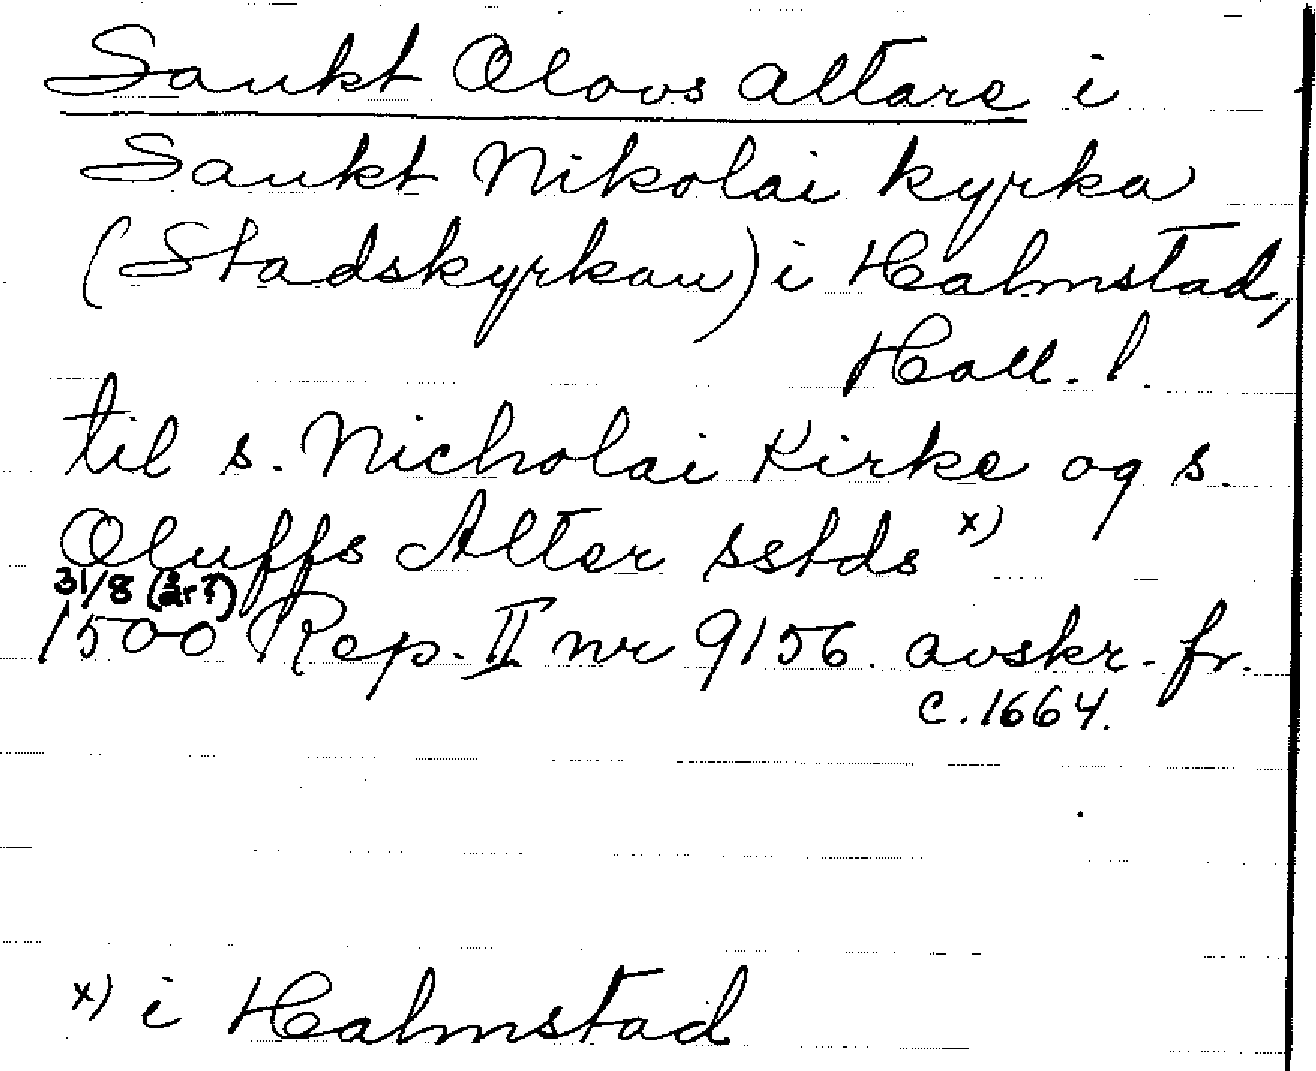 Sankt Olovs altare i
Sankt Nikolai kyrka
(Stadskyrkan) i Halmstad,
Hall. l.
til s. Nicholai Kirke og s.
Oluffs Alter sstds x)
31/8 (år?)
1500 Rep. II nr 9156. avskr. fr.
c. 1664.
x) i Halmstad